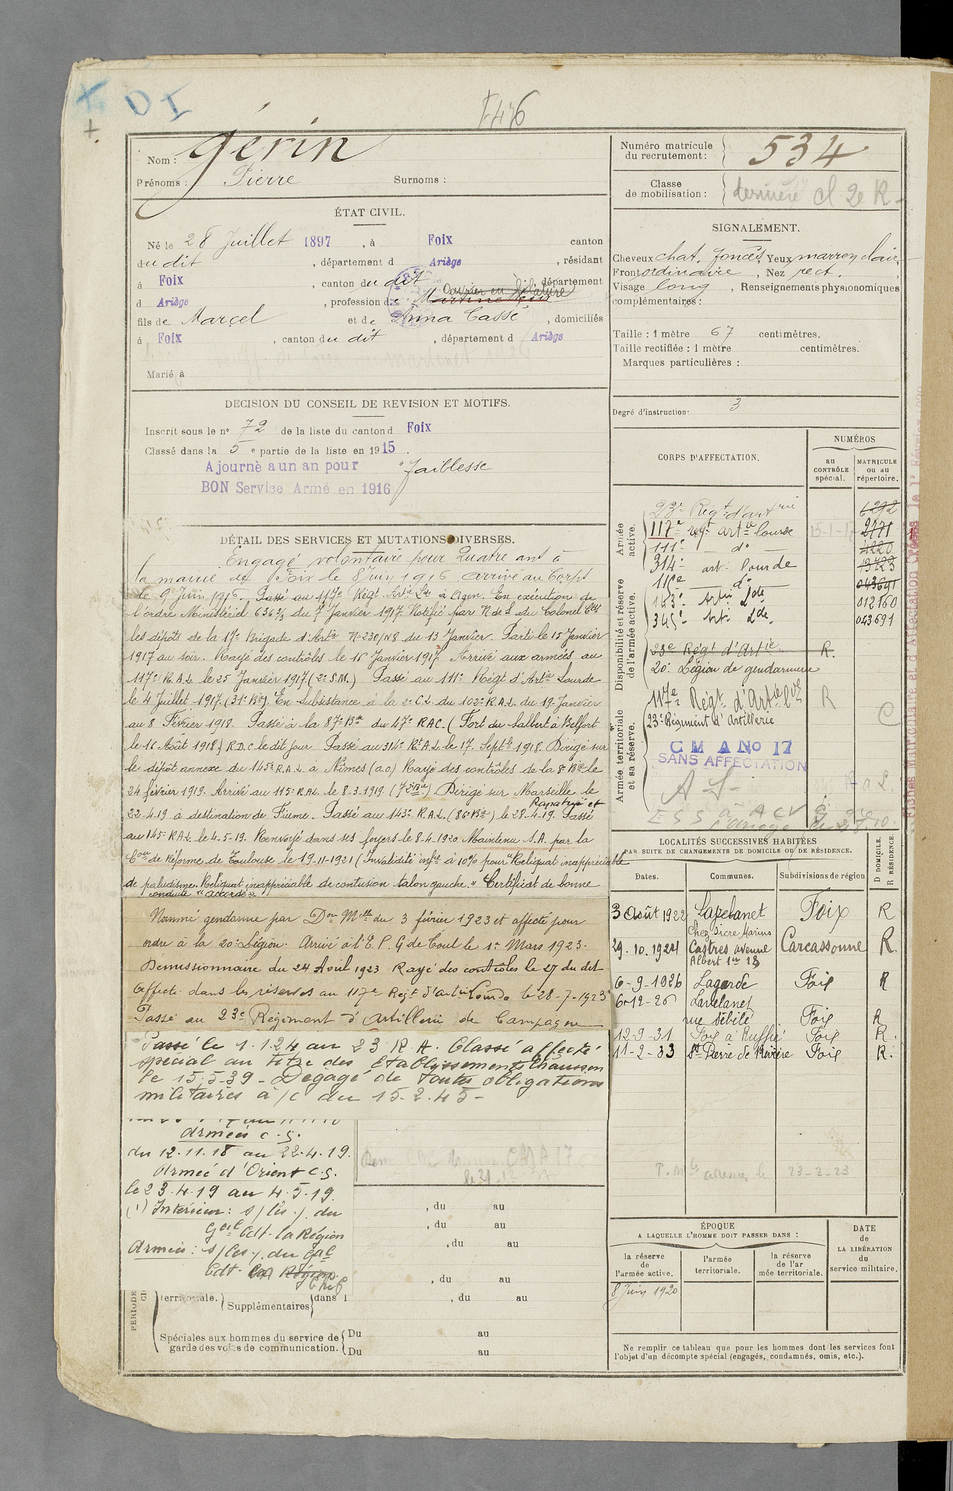 + D I
1476
Nom : Gérin
Prénoms : Pierre Surnoms :
Numéro matricule du recrutement : 534
Classe de mobilisation : dernière cl 2e R
ÉTAT CIVIL.
Né le 28 Juillet 1897, à Foix canton
du dit, département d Ariège, résidant
à Foix, canton du dit, département
d Ariège, profession de Ouvrier en
fils de Marcel et de Anna Cassé, domiciliés
à Foix, canton du dit, département d Ariège
Marié à
SIGNALEMENT.
Cheveux chat. foncés, Yeux marron clair,
Front ordinaire, Nez rect.
Visage long, Renseignements physionomiques
complémentaires :
Taille : 1 mètre 67 centimètres.
Taille rectifiée : 1 mètre centimètres.
Marques particulières :
Degré d'instruction : 3
DECISION DU CONSEIL DE REVISION ET MOTIFS.
Inscrit sous le n° 72 de la liste du canton d Foix
Classé dans la 5 e partie de la liste en 1915.
Ajourné a un an pour faiblesse
BON Service Armé en 1916
DÉTAIL DES SERVICES ET MUTATIONS DIVERSES.
Engagé volontaire pour Quatre ans à
la mairie de Foix le 8 juin 1916 arrivé au Corps
le 9 juin 1916. Passé au 117e Régt Artie Lde à Agen. En exécution de
l'ordre Ministériel 636 2/3 du 7 Janvier 1917. Notifié par N de S du Colonel Ct
les dépôts de la 17e Brigade d'Artie N° 230/N8 du 13 Janvier. Parti le 15 Janvier
1917 au soir. Rayé des contrôles le 16 Janvier 1917 Arrivé aux armées au
117e R.A.L. le 25 Janvier 1917 (2e S.M.) Passé au 111e Régt d'Artie Lourde
le 4 Juillet 1917. (31e Bie) En Subsistance à la 2e C.L du 103e R.A.L du 19 Janvier
au 8 Février 1918. Passé à la 87e Bie du 47e R.A.C. (Fort du Sallert à Belfort
le 16 Août 1918) R.D.C. le dit jour Passé au 314e Rt A.L. le 17 Septbre 1918. Dirigé sur
le dépôt annexe du 145e R.A.L. à Nîmes (a.o) Rayé des contrôles de la Bie le
24 février 1919. Arrivé au 115e R.A.L. le 8.3.1919 (72e Bie) Dirigé sur Marseille le
22-4-19 à destination de Fiume. Passé au 143e R.A.L. (80 Bie) le 28-4-19. Rapatrié et Passé
au 145e R.A.L. le 4-5-19. Renvoyé dans ses foyers le 8-4-1920. Maintenu S.A. par la
Con de Réforme de Toulouse le 19-11-1921 (Invalidité infre à 10% pour "Reliquat inappréciable
de paludisme. Reliquat inappréciable de contusion talon gauche." Certificat de bonne
conduite "accordé"
Nommé gendarme par Don Mlle du 3 février 1923 et affecté pour
ordre à la 20e Légion. Arrivé à l'E.P.G de Toul le 1er Mars 1923.
Démissionnaire du 24 Août 1923 Rayé des contrôles le 27 du dit
Affecté dans les réserves au 117e Régt d'Artie Lourde le 28-7-1923
Passé au 23e Régiment d'Artillerie de Campagne
Passé le 1-1-24 au 23 RA. Classé affecté
spécial au titre des Etablissements Chausson
le 15-5-39 - Dégagé de toutes obligations
militaires à/c du 15-2-45 -
Armées C.S.
du 12.11.18 au 22-4-19.
Armée d'Orient C.S.
le 23-4-19 au 4-5-19.
(1) Intérieur : s/les /. du
Gal Cdt la Région
Armées : s/les /. du Gal
Cdt en Chef
territoriale. Supplémentaires dans l , du au
, du au
, du au
, du au
, du au
Spéciales aux hommes du service de garde des voies de communication. Du au
Du au
CORPS D'AFFECTATION.
NUMÉROS
AU CONTRÔLE spécial.
MATRICULE OU AU répertoire.
Armée active.
Disponibilité et réserve de l'armée active.
Armée territoriale et sa réserve.
23e Régt d'artrie 6292
117e regt arte lourde 2771
111e do 4220
314e art. lourde 13723
117e do 043691
143e Artie Lde 012160
345e Artie Lde 043691
23e Régt d'Artie R.
20e Légion de gendarmerie
117e Régt d'Artie Lde R
23e Régiment d'Artillerie
C M A No 17
SANS AFFECTATION
LOCALITÉS SUCCESSIVES HABITÉES
PAR SUITE DE CHANGEMENTS DE DOMICILE OU DE RÉSIDENCE.
D DOMICILE. R RÉSIDENCE.
Dates. Communes. Subdivisions de région
3 Août 1922 Lavelanet Foix R
29.10.1924 Castres avenue Albert 1er 28 Carcassonne R.
6-9-1926 Lagarde Foix R
6-12-26 Lavelanet rue Sébile Foix R
12-9-31 Foix à Ruffié Foix R.
11-2-33 St Pierre de Rivière Foix R.
23-3-23
ÉPOQUE
A LAQUELLE L'HOMME DOIT PASSER DANS :
la réserve de l'armée active. l'armée territoriale. la réserve de l'armée territoriale.
DATE de LA LIBÉRATION du service militaire.
8 Juin 1920
Ne remplir ce tableau que pour les hommes dont les services font
l'objet d'un décompte spécial (engagés, condamnés, omis, etc.).